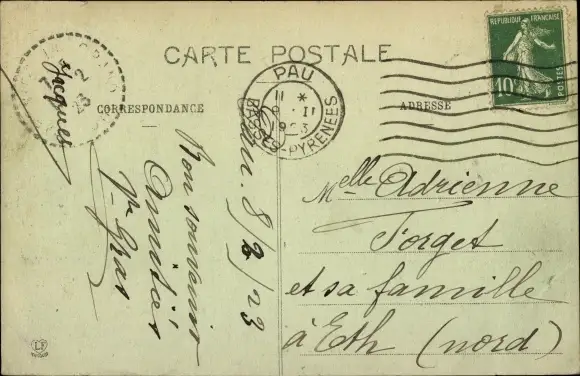 CARTE POSTALE
CORRESPONDANCE
ADRESSE
REPUBLIQUE FRANÇAISE
POSTES
10
PAU
11 *
1923
BASSES-PYRENEES
Jacques
8/2/23
Bon souvenir
Amitiés
Melle Adrienne
Forget
et sa famille
à Eth (nord)
LF